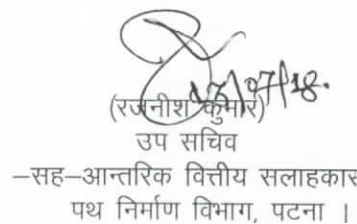 17/07/18.
(रजनीश कुमार)
उप सचिव
–सह–आन्तरिक वित्तीय सलाहकार
पथ निर्माण विभाग, पटना ।